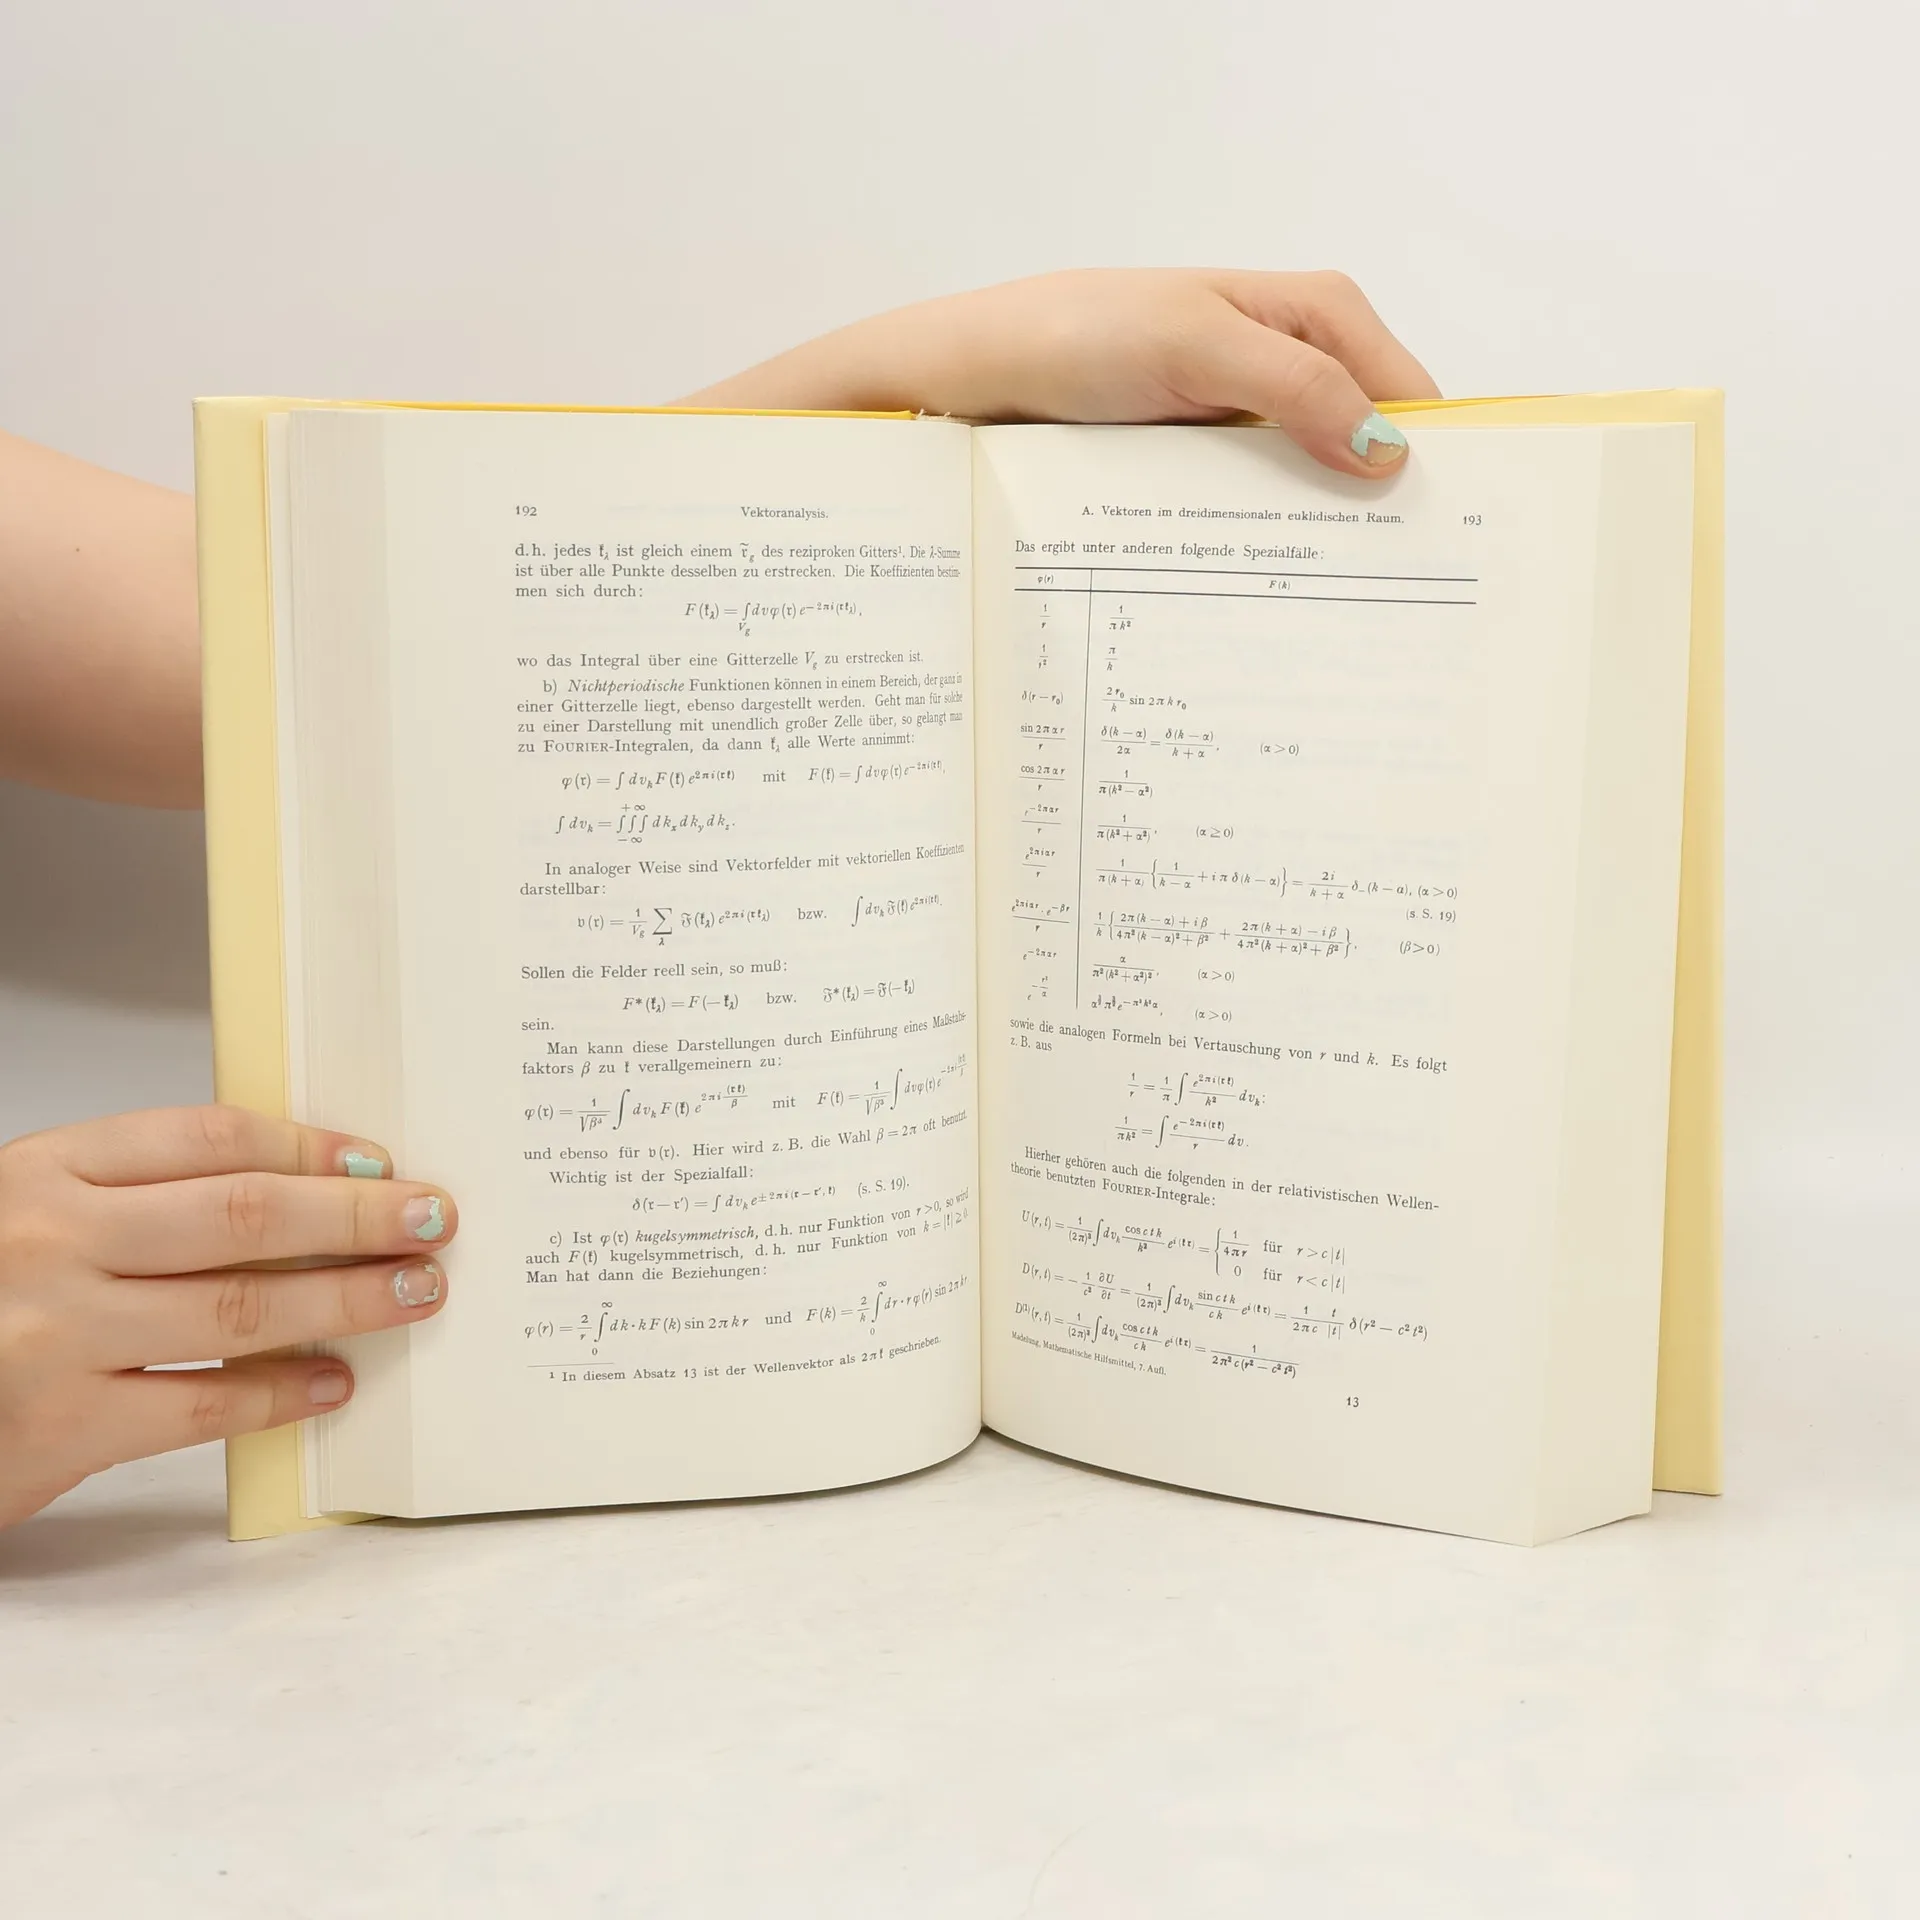 192 Vektoranalysis.
d. h. jedes 𝔨_λ ist gleich einem 𝔯̃_g des reziproken Gitters¹. Die λ-Summe
ist über alle Punkte desselben zu erstrecken. Die Koeffizienten bestim-
men sich durch:
F(𝔨_λ) = ∫_{V_g} dv φ(𝔯) e^{−2πi(𝔯𝔨_λ)},
wo das Integral über eine Gitterzelle V_g zu erstrecken ist.
b) Nichtperiodische Funktionen können in einem Bereich, der ganz in
einer Gitterzelle liegt, ebenso dargestellt werden. Geht man für solche
zu einer Darstellung mit unendlich großer Zelle über, so gelangt man
zu FOURIER-Integralen, da dann 𝔨_λ alle Werte annimmt:
φ(𝔯) = ∫ dv_k F(𝔨) e^{2πi(𝔯𝔨)} mit F(𝔨) = ∫ dv φ(𝔯) e^{−2πi(𝔯𝔨)},
∫ dv_k = ∫∫∫_{−∞}^{+∞} dk_x dk_y dk_z.
In analoger Weise sind Vektorfelder mit vektoriellen Koeffizienten
darstellbar:
𝔳(𝔯) = 1/V_g ∑_λ 𝔉(𝔨_λ) e^{2πi(𝔯𝔨_λ)} bzw. ∫ dv_k 𝔉(𝔨) e^{2πi(𝔯𝔨)}.
Sollen die Felder reell sein, so muß:
F*(𝔨_λ) = F(−𝔨_λ) bzw. 𝔉*(𝔨_λ) = 𝔉(−𝔨_λ)
sein.
Man kann diese Darstellungen durch Einführung eines Maßstabs-
faktors β zu 𝔨 verallgemeinern zu:
φ(𝔯) = 1/√β³ ∫ dv_k F(𝔨) e^{2πi (𝔯𝔨)/β} mit F(𝔨) = 1/√β³ ∫ dv φ(𝔯) e^{−2πi (𝔯𝔨)/β}
und ebenso für 𝔳(𝔯). Hier wird z. B. die Wahl β = 2π oft benutzt.
Wichtig ist der Spezialfall:
δ(𝔯 − 𝔯′) = ∫ dv_k e^{±2πi(𝔯−𝔯′, 𝔨)} (s. S. 19).
c) Ist φ(𝔯) kugelsymmetrisch, d. h. nur Funktion von r > 0, so wird
auch F(𝔨) kugelsymmetrisch, d. h. nur Funktion von k = |𝔨| ≥ 0.
Man hat dann die Beziehungen:
φ(r) = 2/r ∫_0^∞ dk · k F(k) sin 2πkr und F(k) = 2/k ∫_0^∞ dr · r φ(r) sin 2πkr
¹ In diesem Absatz 13 ist der Wellenvektor als 2π𝔨 geschrieben.
A. Vektoren im dreidimensionalen euklidischen Raum. 193
Das ergibt unter anderen folgende Spezialfälle:
φ(r) F(k)
1/r 1/(πk²)
1/r² π/k
δ(r − r₀) 2r₀/k sin 2πkr₀
sin 2παr/r δ(k − α)/2α = δ(k − α)/(k + α), (α > 0)
cos 2παr/r 1/(π(k² − α²))
e^{−2παr}/r 1/(π(k² + α²)), (α ≥ 0)
e^{2πiαr}/r 1/(π(k + α)) {1/(k − α) + iπδ(k − α)} = 2i/(k + α) δ₋(k − α), (α > 0)
(s. S. 19)
e^{2πiαr} · e^{−βr}/r 1/k {(2π(k − α) + iβ)/(4π²(k − α)² + β²) + (2π(k + α) − iβ)/(4π²(k + α)² + β²)}, (β > 0)
e^{−2παr} α/(π²(k² + α²)²), (α > 0)
e^{−r²/α} α^{3/2} π^{3/2} e^{−π²k²α}, (α > 0)
sowie die analogen Formeln bei Vertauschung von r und k. Es folgt
z. B. aus
1/r = 1/π ∫ e^{2πi(𝔯𝔨)}/k² dv_k;
1/(πk²) = ∫ e^{−2πi(𝔯𝔨)}/r dv.
Hierher gehören auch die folgenden in der relativistischen Wellen-
theorie benutzten FOURIER-Integrale:
U(r, t) = 1/(2π)³ ∫ dv_k cos ctk/k² e^{i(𝔨𝔯)} = { 1/(4πr) für r > c|t|
0 für r < c|t|
D(r, t) = − 1/c² ∂U/∂t = 1/(2π)³ ∫ dv_k sin ctk/ck e^{i(𝔨𝔯)} = 1/(2πc) t/|t| δ(r² − c²t²)
D⁽¹⁾(r, t) = 1/(2π)³ ∫ dv_k cos ctk/ck e^{i(𝔨𝔯)} = 1/(2π²c(r² − c²t²))
Madelung, Mathematische Hilfsmittel, 7. Aufl.
13